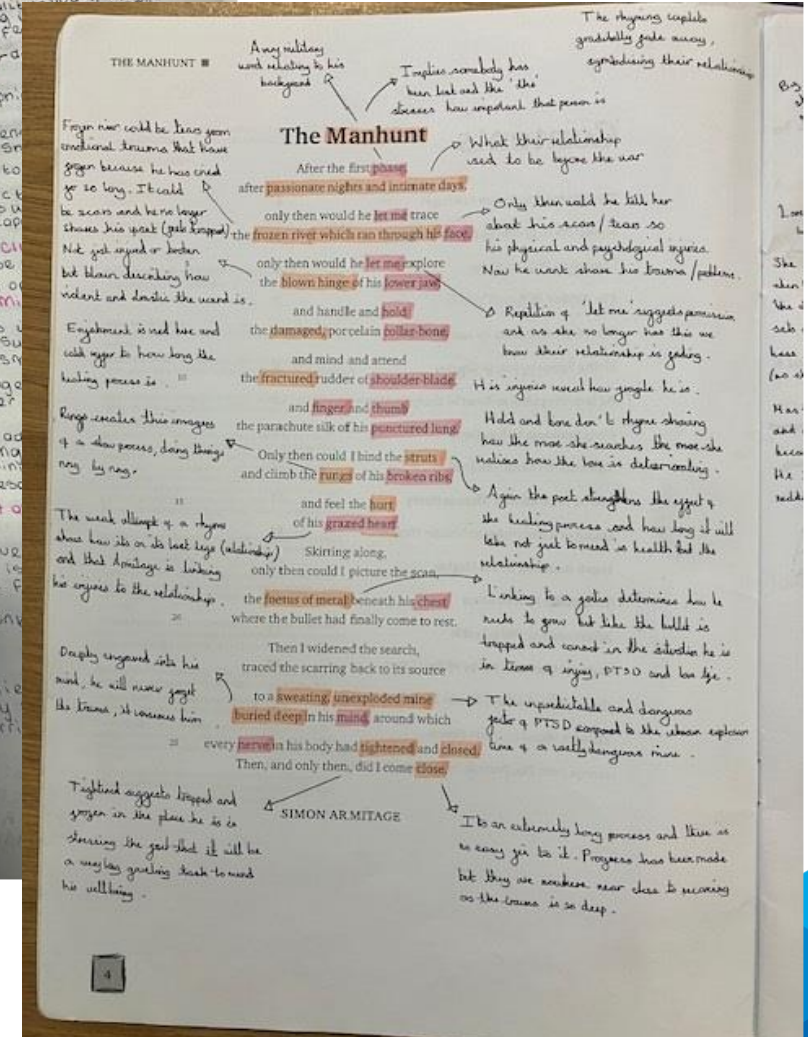 THE MANHUNT
Army military
word relating to his
background
Implies somebody has
been lost and the 'the'
stresses how important that person is
The rhyming couplets
gradually fade away,
symbolising their relationship
The Manhunt
After the first phase,
after passionate nights and intimate days,
only then would he let me trace
the frozen river which ran through his face,
5
only then would he let me explore
the blown hinge of his lower jaw,
and handle and hold
the damaged, porcelain collar-bone,
and mind and attend
10
the fractured rudder of shoulder-blade,
and finger and thumb
the parachute silk of his punctured lung.
Only then could I bind the struts
and climb the rungs of his broken ribs,
15
and feel the hurt
of his grazed heart.
Skirting along,
only then could I picture the scan,
the foetus of metal beneath his chest
20
where the bullet had finally come to rest.
Then I widened the search,
traced the scarring back to its source
to a sweating, unexploded mine
buried deep in his mind, around which
25
every nerve in his body had tightened and closed.
Then, and only then, did I come close.
SIMON ARMITAGE
Frozen river could be tears from
emotional trauma that have
frozen because he has cried
for so long. It could
be scars and he no longer
shares his past (feels trapped)
Not just injured or broken
but blown describing how
violent and drastic the wound is.
is used here and
could refer to how long the
healing process is.
Rungs creates this imagery
of a slow process, doing things
rung by rung.
The weak attempt of a rhyme
shows how its on its last legs (relationship)
and that Armitage is linking
his injuries to the relationship.
Deeply engraved into his
mind, he will never forget
the trauma, it consumes him
Tightened suggests trapped and
frozen in the place he is in
stressing the fact that it will be
a very long task to mend
his wellbeing.
What their relationship
used to be before the war
Only then would he tell her
about his scars / tears so
his physical and psychological injuries.
Now he wont share his trauma / problems.
Repetition of 'let me' suggests permission
and as she no longer has this we
know their relationship is fading.
His injuries reveal how fragile he is.
Hold and bone don't rhyme showing
how the more she searches the more she
realises how the love is deteriorating.
Again the poet strengthens the effect of
the healing process and how long it will
take not just to mend is health but the
relationship.
Linking to a foetus determines how he
needs to grow but like the bullet is
trapped and cannot in the situation he is
in terms of injury, PTSD and love life.
The unpredictable and dangerous
factor of PTSD compared to the unknown explosion
time of a dangerous mine.
It's an extremely long process and there is
no easy fix to it. Progress has been made
but they are nowhere near close to recovering
as the trauma is so deep.
4